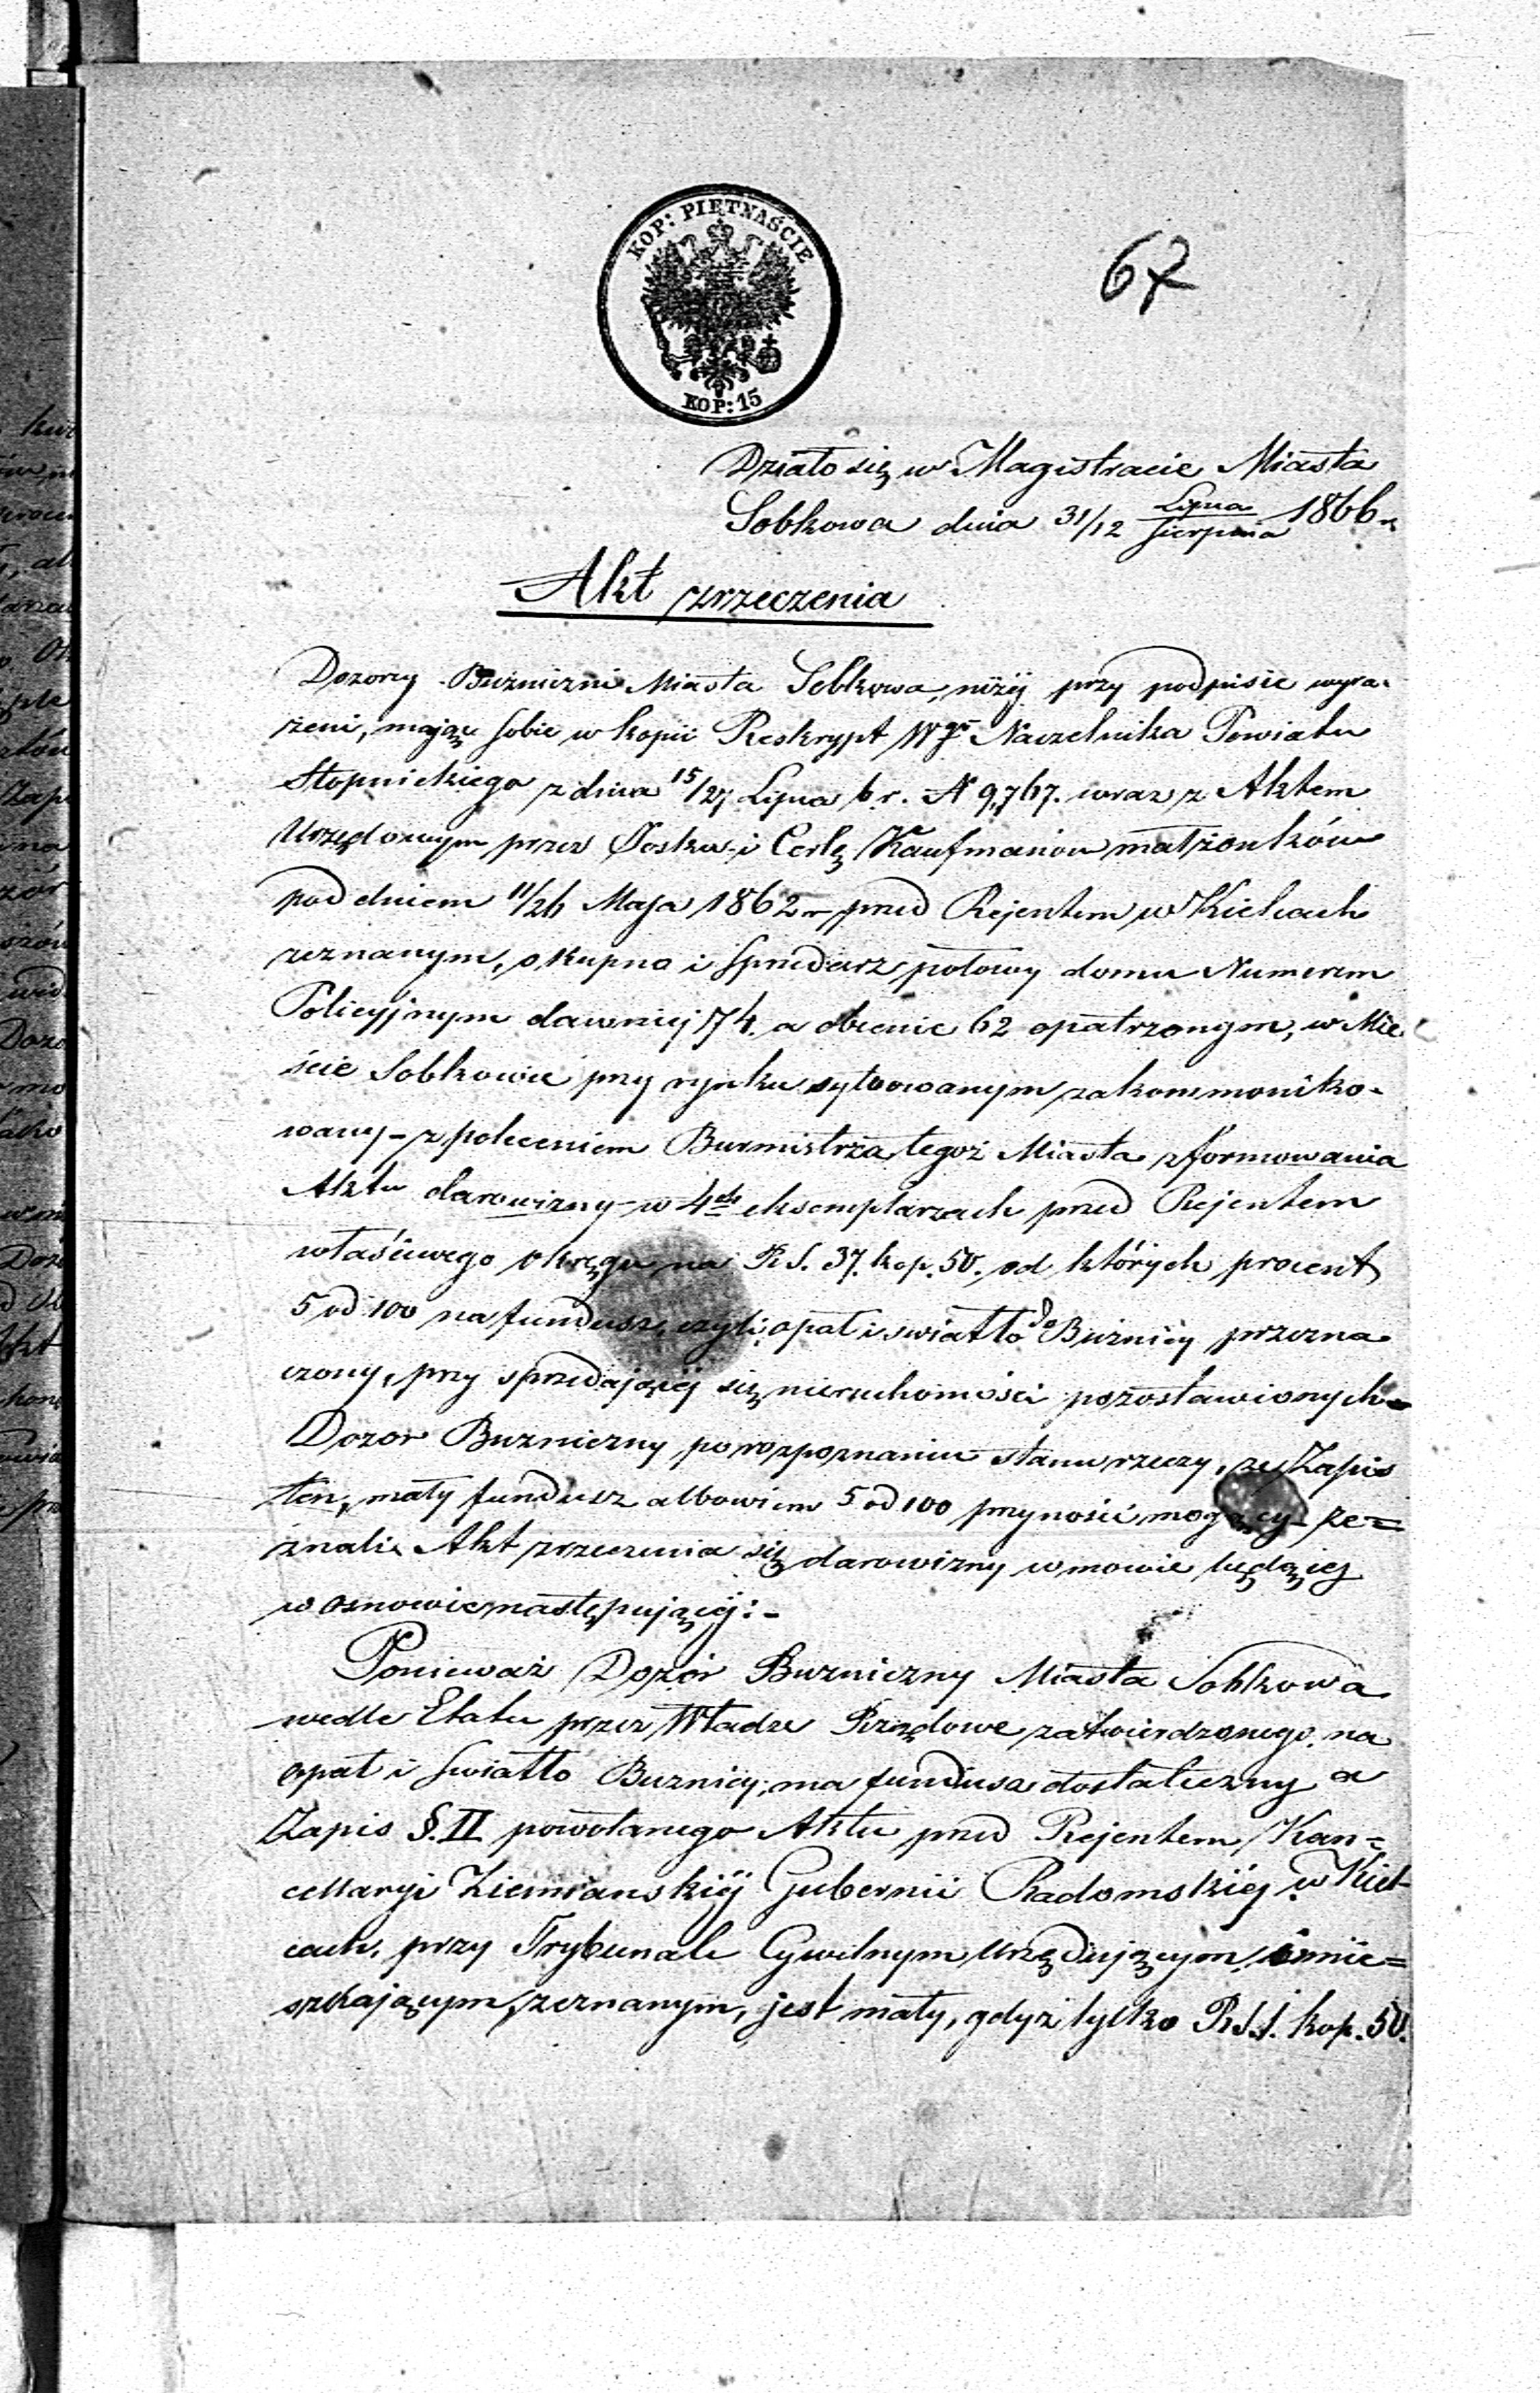 KOP: PIĘTNAŚCIE
KOP: 15
67
Działo się w Magistracie Miasta
Sobkowa dnia 31/12 Lipca/Sierpnia 1866 r.
Akt zrzeczenia
Dozorcy Bużniczni Miasta Sobkowa, niżéj przy podpisie wyra-
żeni, mając sobie w kopii Reskrypt Wgo Naczelnika Powiatu
Stopnickiego z dnia 15/27 Lipca b. r. N 9,767. wraz z Aktem
Urzędowym przez Joska i Cerlę Kaufmanów małżonków
pod dniem 11/26 Maja 1862 r. przed Rejentem w Kielcach
zeznanym, o kupno i sprzedarz połowy domu Numerem
Policyjnym dawniéj 74. a obecnie 62 opatrzonym, w Mie-
ście Sobkowie przy rynku sytuowanym zakommoniko-
wany - z poleceniem Burmistrza tegoż Miasta zformowania
Aktu darowizny w 4ch eksemplarzach przed Rejentem
właściwego okręgu na R S. 37. kop. 50. od których procent
5 od 100 na fundusz, czyli opał i swiatło do Bużnicy przezna
czony, przy sprzedającéj się nieruchomości pozostawionych -
Dozor Buzniczny po rozpoznaniu stanu rzeczy, ze Zapis
ten, mały fundusz albowiem 5 od 100 przynosić mogący - ze=
znali Akt zrzeczenia się darowizny w mowie będącéj
w osnowie następującéj: -
Ponieważ Dozór Buzniczny Miasta Sobkowa
wedle Etatu przez Władze Rządowe zatwierdzonego, na
opał i swiatło Buznicy, ma fundusz dostateczny a
Zapis §. II powołanego Aktu przed Rejentem Kan=
cellaryi Ziemianskiéj Gubernii Radomskiéj w Kiel-
cach, przy Trybunale Cywilnym urzędującym i mie=
szkającym, zeznanym, jest mały, gdyż tylko R S. 1. kop. 50.